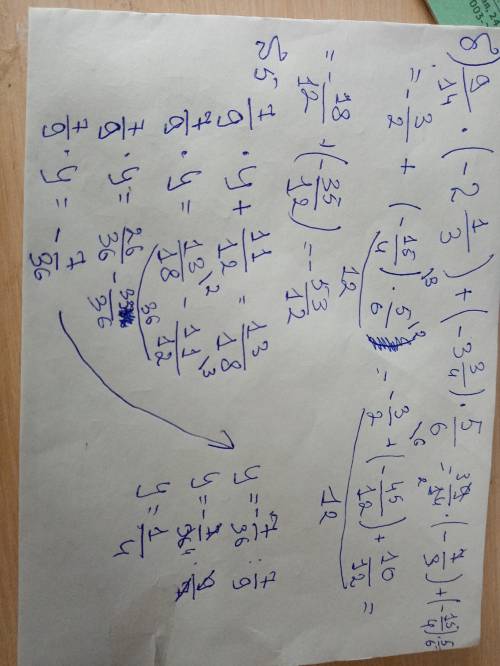 8) 9/14 · (-2 1/3) + (-3 3/4) · 5/6 = 9/14 · (-7/3) + (-15/4) · 5/6
= -3/2 + (-15/4) · 5/6 = -3/2 + (-45/12) + 10/12 =
12
12
= -18/12 + (-35/12) = -53/12
7/9 · y + 11/12 = 13/18
7/9 · y = 13/18 - 11/12
36
7/9 · y = 26/36 - 33/36
7/9 · y = -7/36
y = -7/36 : 7/9
y = -7/36 · 9/7
y = 1/4